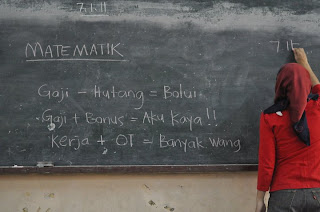 7.1.11
MATEMATIK
7 1
Gaji - Hutang = Bolui
Gaji + Bonus = Aku Kaya!!
Kerja + OT = Banyak Wang